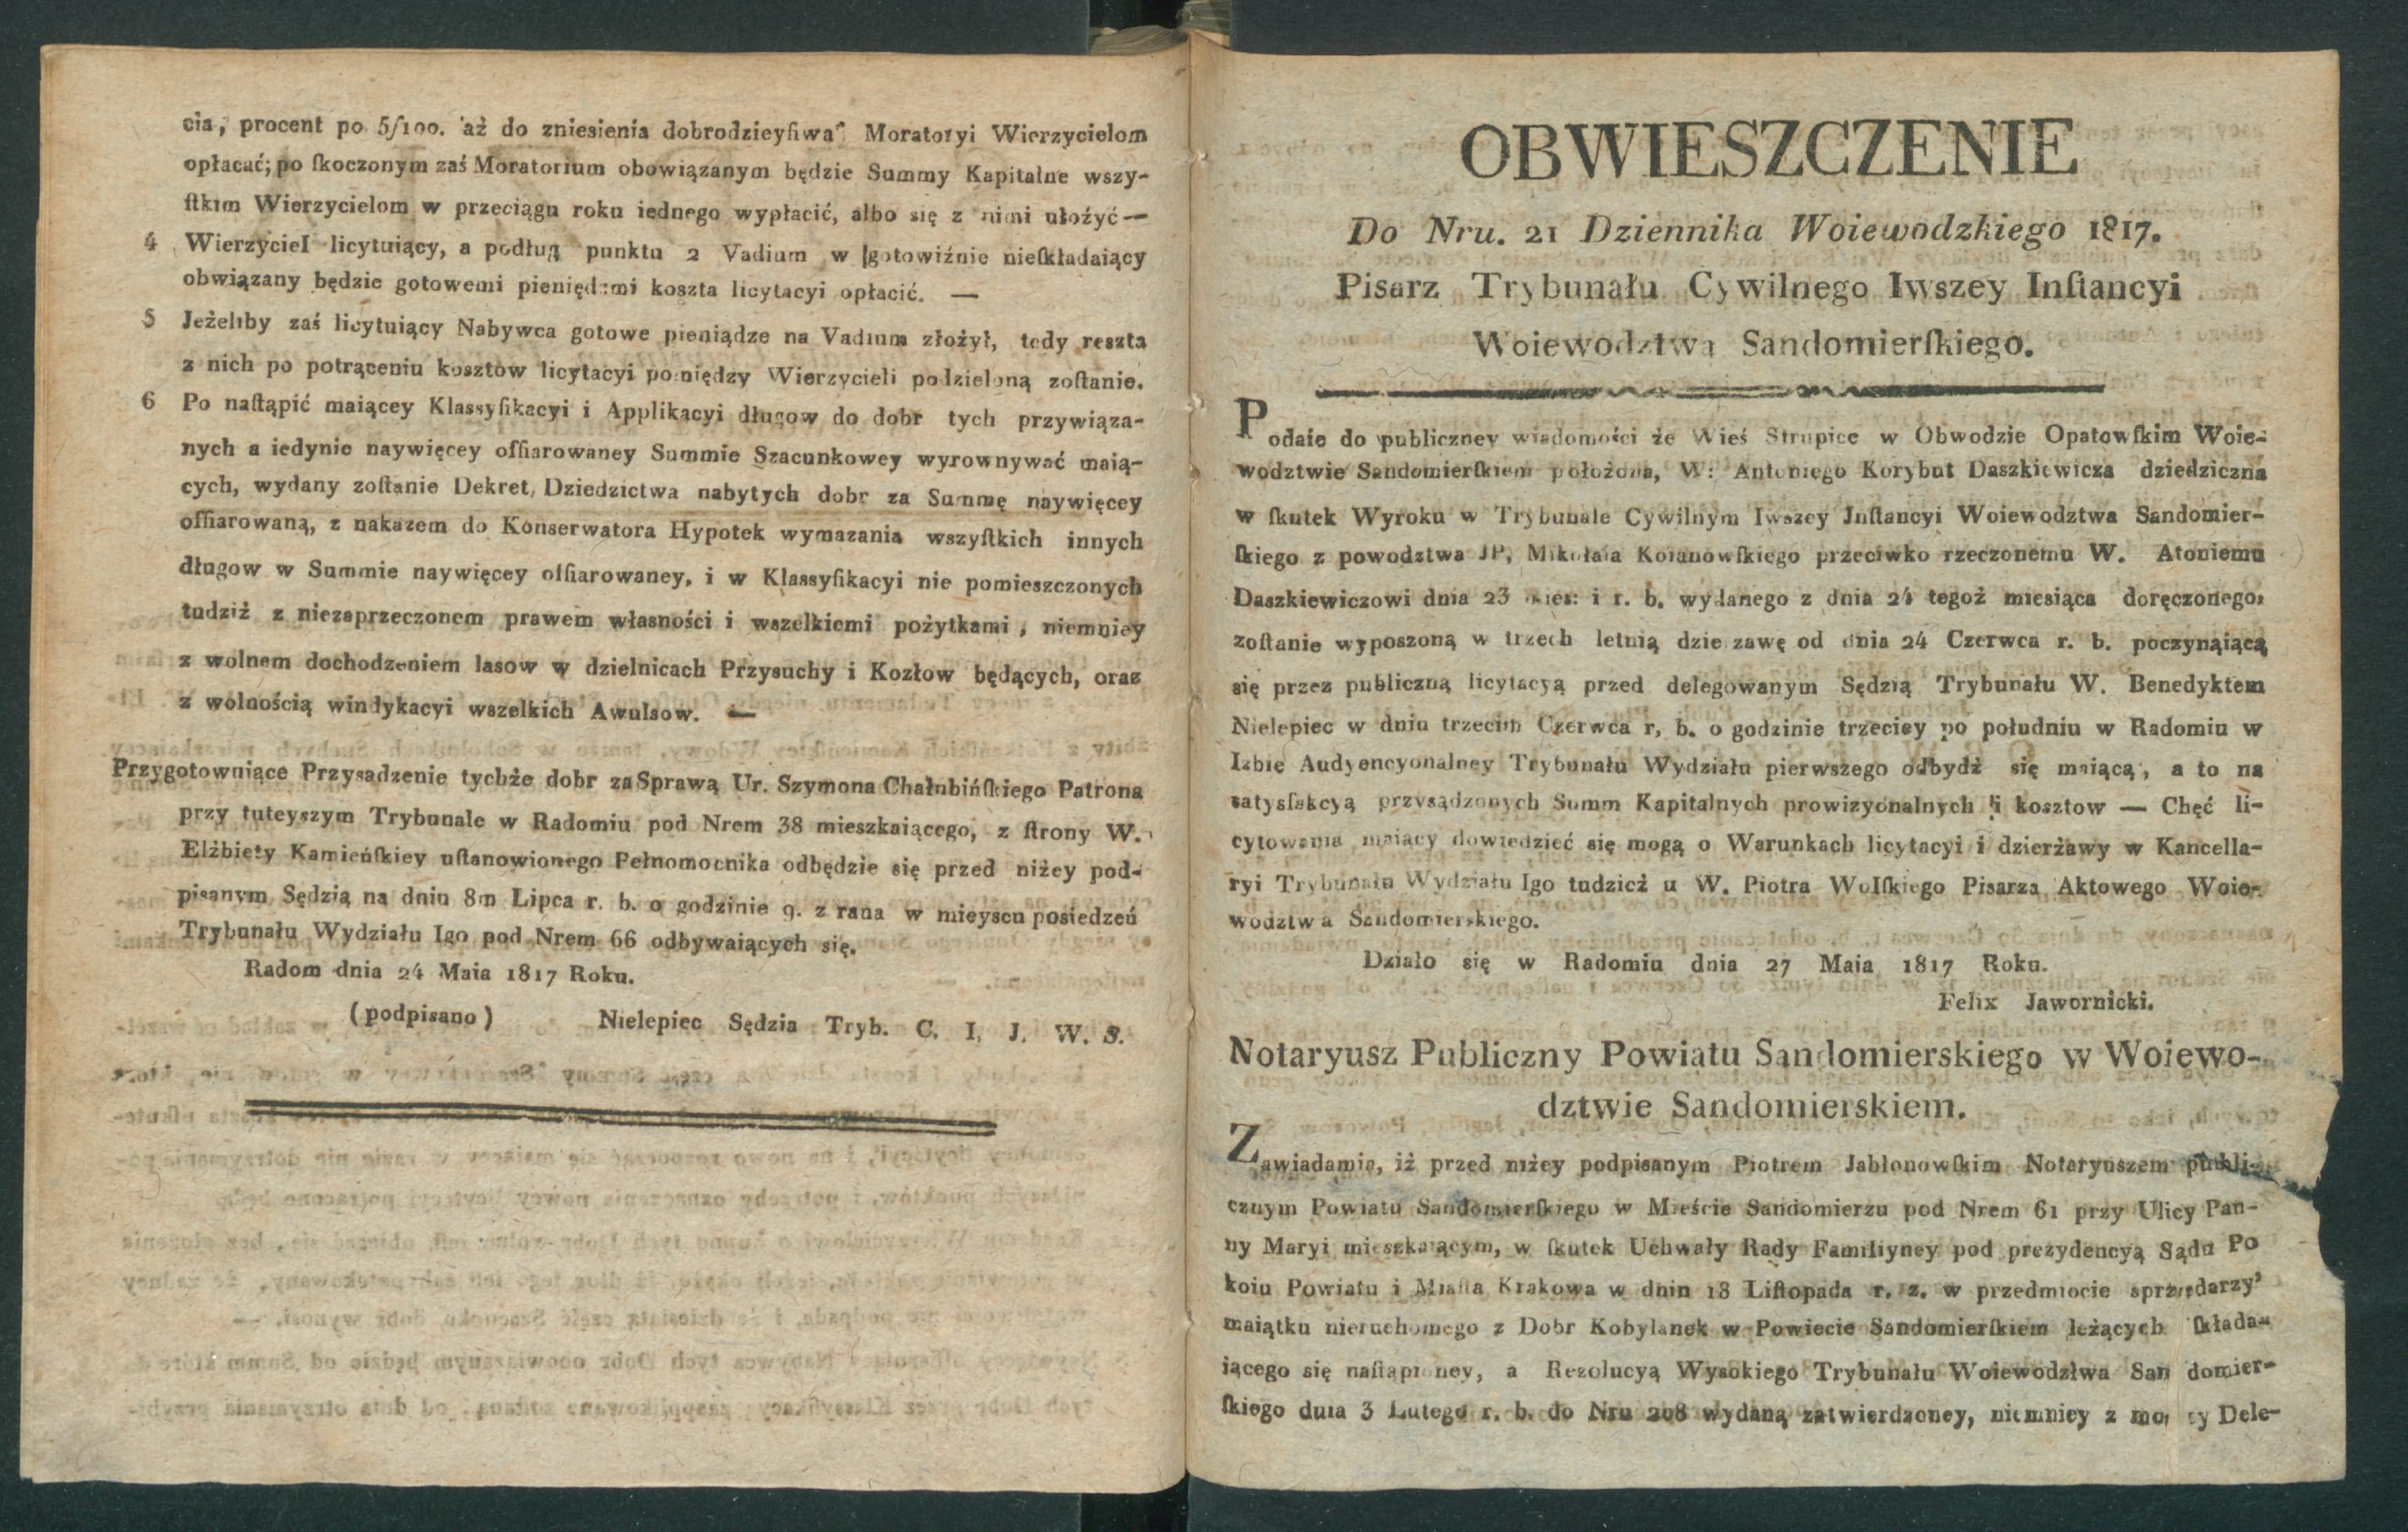 cia, procent po 5/100. aż do zniesienia dobrodzieyſtwa Moratoryi Wierzycielom
opłacać; po ſkoczonym zaś Moratorium obowiązanym będzie Summy Kapitalne wszy-
ſtkim Wierzycielom w przeciągu roku iednego wypłacić, albo się z nimi ułożyć —
4 Wierzyciel licytuiący, a podług punktu 2 Vadium w gotowiźnie nieſkładaiący
obwiązany będzie gotowemi pieniędzmi koszta licytacyi opłacić. —
5 Jeżeliby zaś licytuiący Nabywca gotowe pieniądze na Vadium złożył, tedy reszta
z nich po potrąceniu kosztow licytacyi pomiędzy Wierzycieli podzieloną zoſtanie.
6 Po naſtąpić maiącey Klassyfikacyi i Applikacyi długow do dobr tych przywiąza-
nych a iedynie naywięcey offiarowaney Summie Szacunkowey wyrownywać maią-
cych, wydany zoſtanie Dekret, Dziedzictwa nabytych dobr za Summę naywięcey
offiarowaną, z nakazem do Konserwatora Hypotek wymazania wszyſtkich innych
długow w Summie naywięcey offiarowaney, i w Klassyfikacyi nie pomieszczonych
tudziż z niezaprzeczonem prawem własności i wszelkiemi pożytkami, niemniey
z wolnem dochodzeniem lasow w dzielnicach Przysuchy i Kozłow będących, oraz
z wolnością windykacyi wszelkich Awulsow. —
Przygotowuiące Przysądzenie tychże dobr za Sprawą Ur. Szymona Chałubińſkiego Patrona
przy tuteyszym Trybunale w Radomiu pod Nrem 38 mieszkaiącego, z ſtrony W.
Elżbiety Kamieńſkiey uſtanowionego Pełnomocnika odbędzie się przed niżey pod-
pisanym Sędzią na dniu 8m Lipca r. b. o godzinie 9. z rana w mieyscu posiedzeń
Trybunału Wydziału Igo pod Nrem 66 odbywaiących się.
Radom dnia 24 Maia 1817 Roku.
(podpisano) Nielepiec Sędzia Tryb. C. I. J. W. S.
OBWIESZCZENIE
Do Nru. 21 Dziennika Woiewodzkiego 1817.
Pisarz Trybunału Cywilnego Iwszey Inſtancyi
Woiewodztwa Sandomierſkiego.
Podaie do publiczney wiadomości że Wieś Strupice w Obwodzie Opatowſkim Woie-
wodztwie Sandomierſkiem położona, W: Antoniego Korybut Daszkiewicza dziedziczna
w ſkutek Wyroku w Trybunale Cywilnym Iwszey Jnſtancyi Woiewodztwa Sandomier-
ſkiego z powodztwa JP. Mikołaia Koianowſkiego przeciwko rzeczonemu W. Atoniemu
Daszkiewiczowi dnia 23 mies: i r. b. wydanego z dnia 24 tegoż miesiąca doręczonego,
zoſtanie wyposzoną w trzech letnią dzie zawę od dnia 24 Czerwca r. b. poczynąiącą
się przez publiczną licytacyą przed delegowanym Sędzią Trybunału W. Benedyktem
Nielepiec w dniu trzecim Czerwca r, b. o godzinie trzeciey po południu w Radomiu w
Izbie Audyencyonalney Trybunału Wydziału pierwszego odbydź się maiącą, a to na
satysfakcyą przysądzonych Summ Kapitalnych prowizyonalnych i kosztow — Chęć li-
cytowania maiący dowiedzieć się mogą o Warunkach licytacyi i dzierżawy w Kancella-
ryi Trybunału Wydziału Igo tudzież u W. Piotra Wolſkiego Pisarza Aktowego Woie-
wodztwa Sandomierskiego.
Działo się w Radomiu dnia 27 Maia 1817 Roku.
Felix Jawornicki.
Notaryusz Publiczny Powiatu Sandomierskiego w Woiewo-
dztwie Sandomierskiem.
Zawiadamia, iż przed niżey podpisanym Piotrem Jabłonowſkim Notaryuszem publi-
cznym Powiatu Sandomierſkiego w Mieście Sandomierzu pod Nrem 61 przy Ulicy Pan-
ny Maryi mieszkaiącym, w ſkutek Uchwały Rady Familiyney pod prezydencyą Sądu Po
koiu Powiatu i Miaſta Krakowa w dniu 18 Liſtopada r. z. w przedmiocie sprzedarzy
maiątku nieruchomego z Dobr Kobylanek w Powiecie Sandomierſkiem leżących ſkłada-
iącego się naſtąpioney, a Rezolucyą Wysokiego Trybunału Woiewodztwa San domier-
ſkiego dnia 3 Lutego r. b. do Nru 208 wydaną zatwierdzoney, niemniey z mocy Dele-